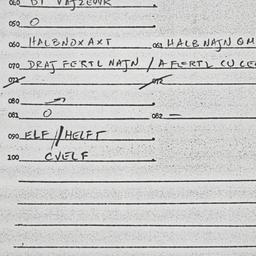 050 O
060 HALBNOXAXT 061 HALB NAJN OM
070 DRAJ FERTL NAJN / A FERTL CU CE
071 072
080
081 O 082 —
090 ELF // HELFT
100 CVELF